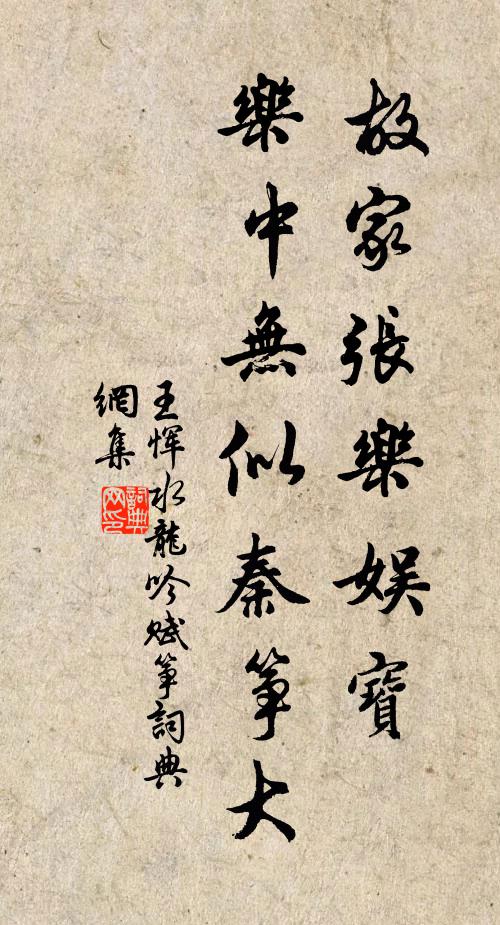 故家張樂娛寶
樂中無似秦箏大
王惲水龍吟賦箏詞典
網集
詞典
网印